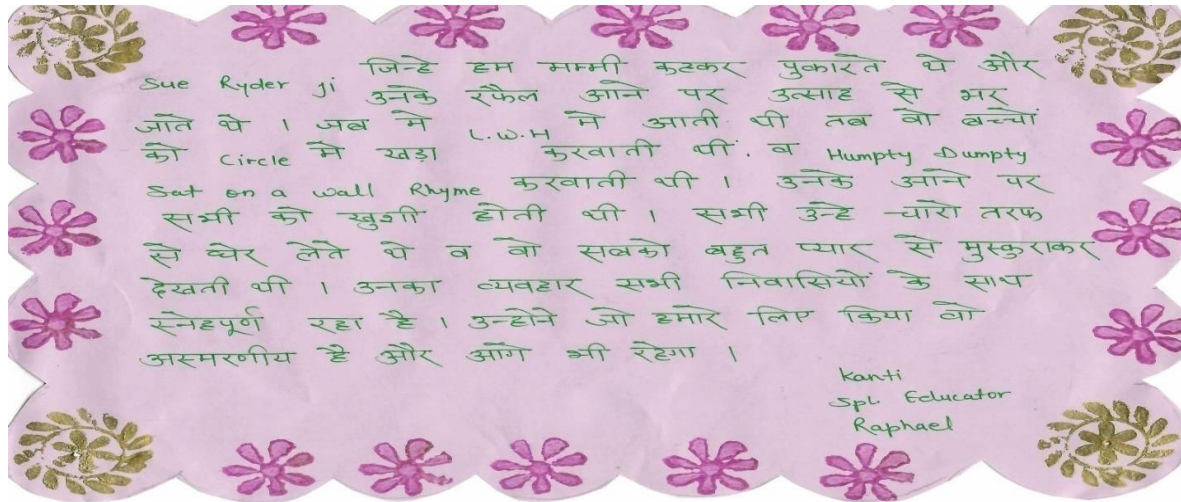 Sue Ryder ji जिन्हे हम मम्मी कहकर पुकारते थे और
उनके रफैल आने पर उत्साह से भर
जाते थे । जब मे L.W.H मे आती थी तब वो बच्चों
को Circle मे खड़ा करवाती थी. व Humpty Dumpty
Sat on a wall Rhyme करवाती थी । उनके आने पर
सभी को खुशी होती थी । सभी उन्हे चारो तरफ
से घेर लेते थे व वो सबको बहुत प्यार से मुस्कुराकर
देखती थी । उनका व्यवहार सभी निवासियों के साथ
स्नेहपूर्ण रहा है । उन्होने जो हमारे लिए किया वो
अस्मरणीय है और आगे भी रहेगा ।
Kanti
Spl. Educator
Raphael